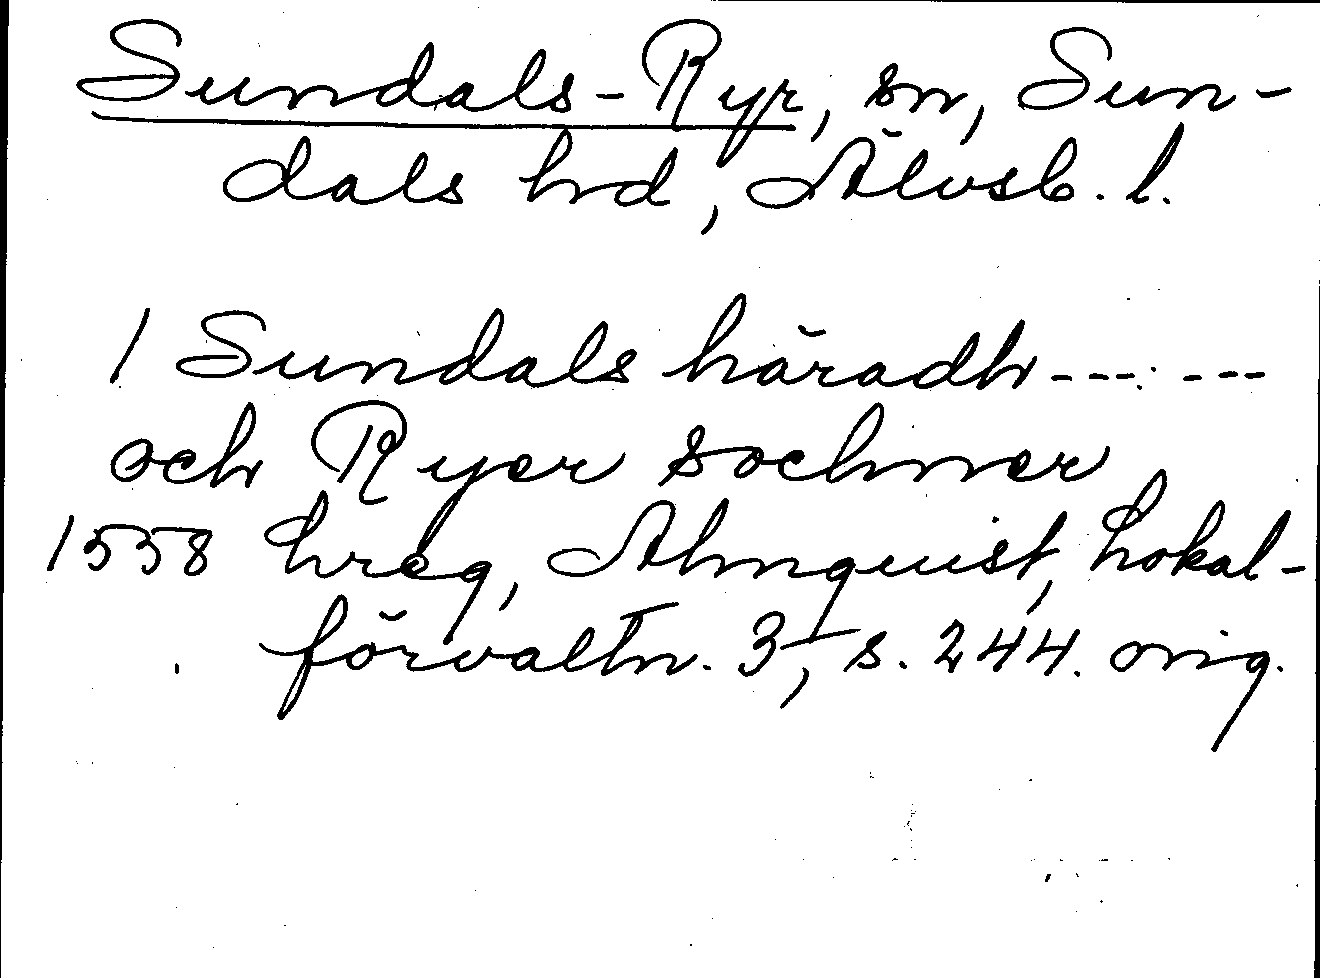 Sundals-Ryr, sn, Sun-
dals hd, Älvsb. l.
I Sundals häradh --- ---
och Ryer sochner
1558 hreg, Almquist, Lokal-
förvaltn. 3, s. 244. orig.